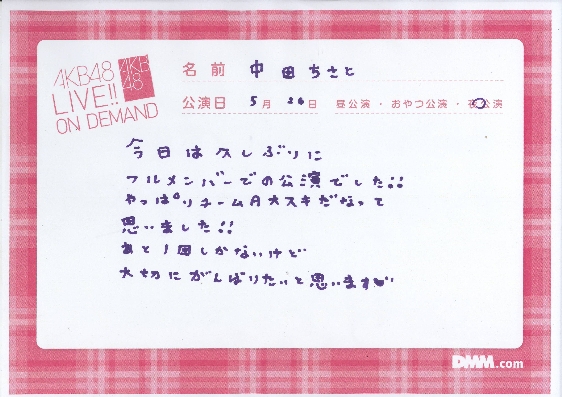 AKB48
LIVE!!
ON DEMAND
AKB
48
名前 中田ちさと
公演日 5月26日 昼公演・おやつ公演・夜公演
今日は久しぶりに
フルメンバーでの公演でした!!
やっぱりチームA大スキだなって
思いました!!
あと1回しかないけど
大切にがんばりたいと思います♡
DMM.com